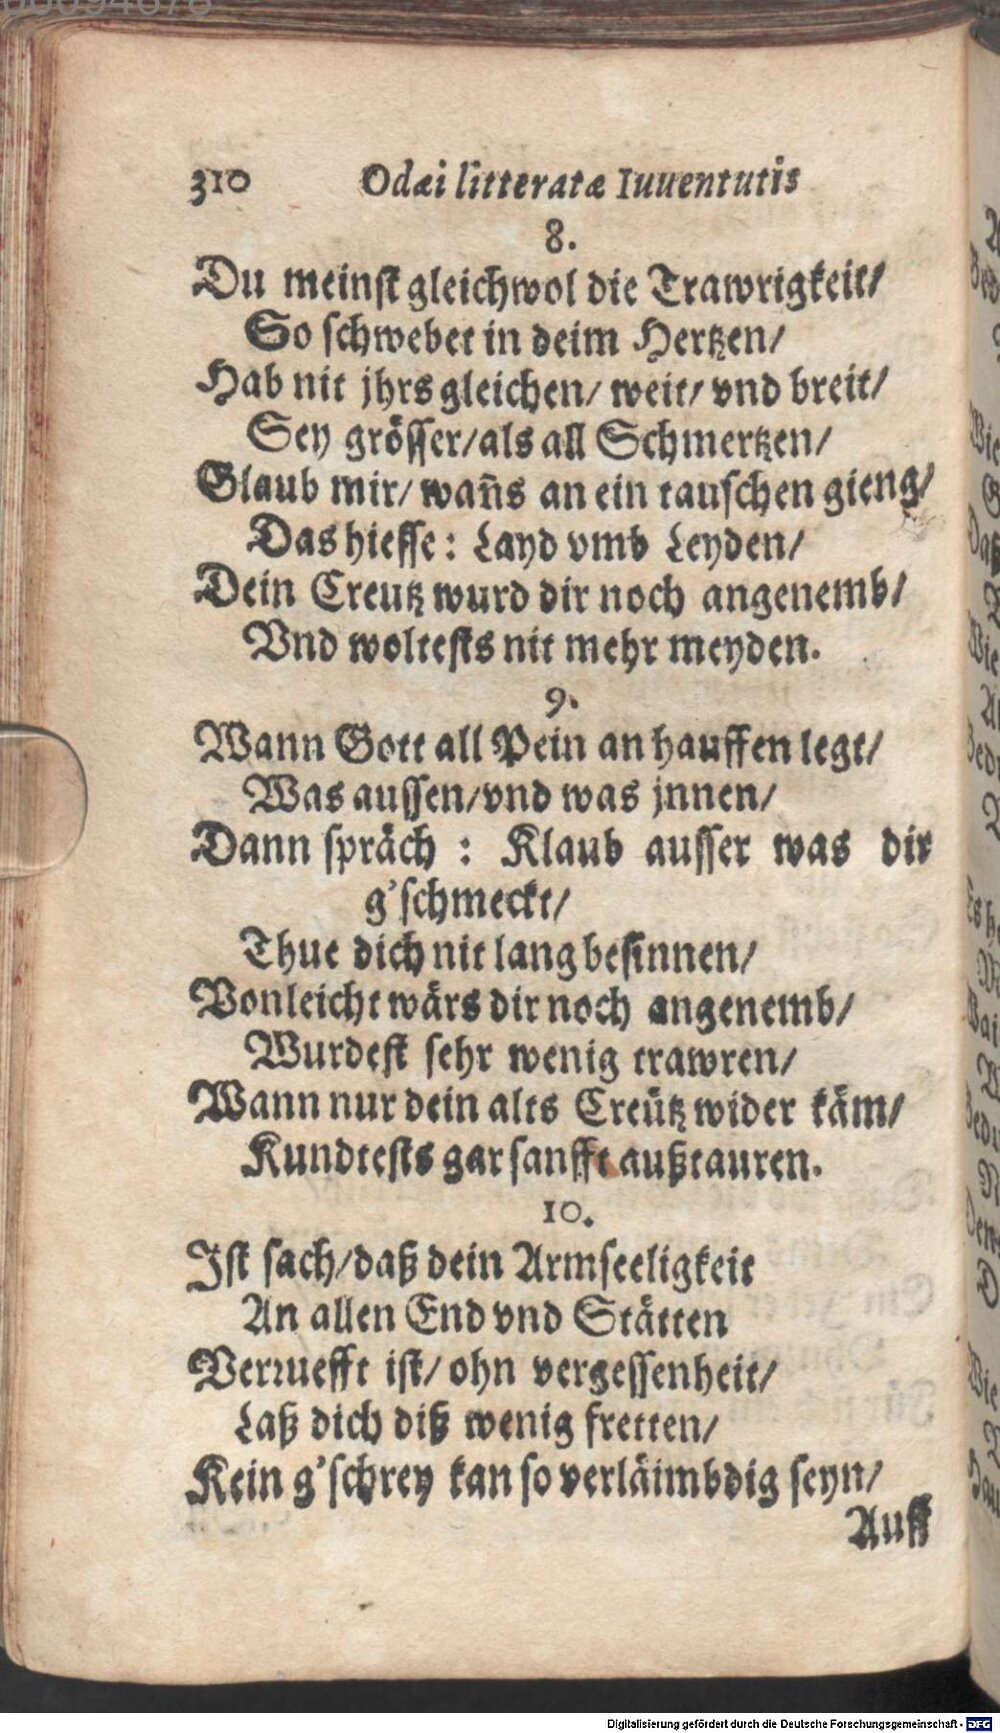 310 Odæi litteratæ Iuuentutis
8.
Du meinst gleichwol die Trawrigkeit/
So schwebet in deim Hertzen/
Hab nit jhrs gleichen/ weit/ vnd breit/
Sey grösser/als all Schmertzen/
Glaub mir/ wañs an ein tauschen gieng/
Das hiesse: Layd vmb Leyden/
Dein Creutz wurd dir noch angenemb/
Vnd woltests nit mehr meyden.
9.
Wann Gott all Pein an hauffen legt/
Was aussen/vnd was jnnen/
Dann spräch : Klaub ausser was dir
g'schmeckt/
Thue dich nit lang besinnen/
Vonleicht wärs dir noch angenemb/
Wurdest sehr wenig trawren/
Wann nur dein alts Creütz wider käm/
Kundtests gar sanfft außtauren.
10.
Ist sach/daß dein Armseeligkeit
An allen End vnd Stätten
Verruefft ist/ ohn vergessenheit/
Laß dich diß wenig fretten/
Kein g'schrey kan so verläimbdig seyn/
Auff
Digitalisierung gefördert durch die Deutsche Forschungsgemeinschaft - DFG